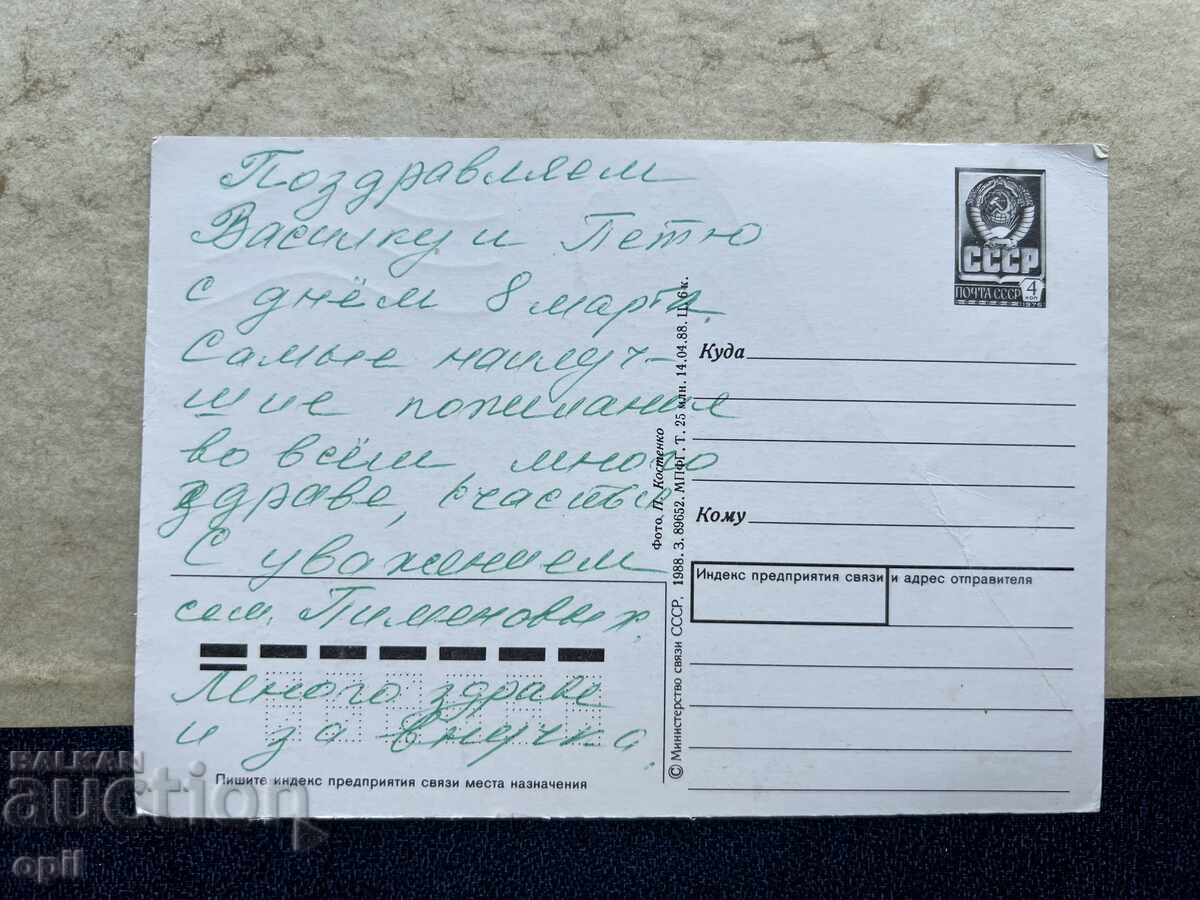 Поздравляем
Василку и Петю
с днём 8 марта.
Самые наилуч-
шие пожелания
во всём, много
здраве, счастья
С уважением
сем. Пименовых.
Много здраве
и за внучка
Пишите индекс предприятия связи места назначения
© Министерство связи СССР. 1988. З. 89652. МПФГ. Т. 25 млн. 14.04.88. Ц. 6 к.
Фото П. Костенко
СССР
ПОЧТА СССР 4 КОП
1976
Куда
Кому
Индекс предприятия связи и адрес отправителя
BALKAN
auction
opil